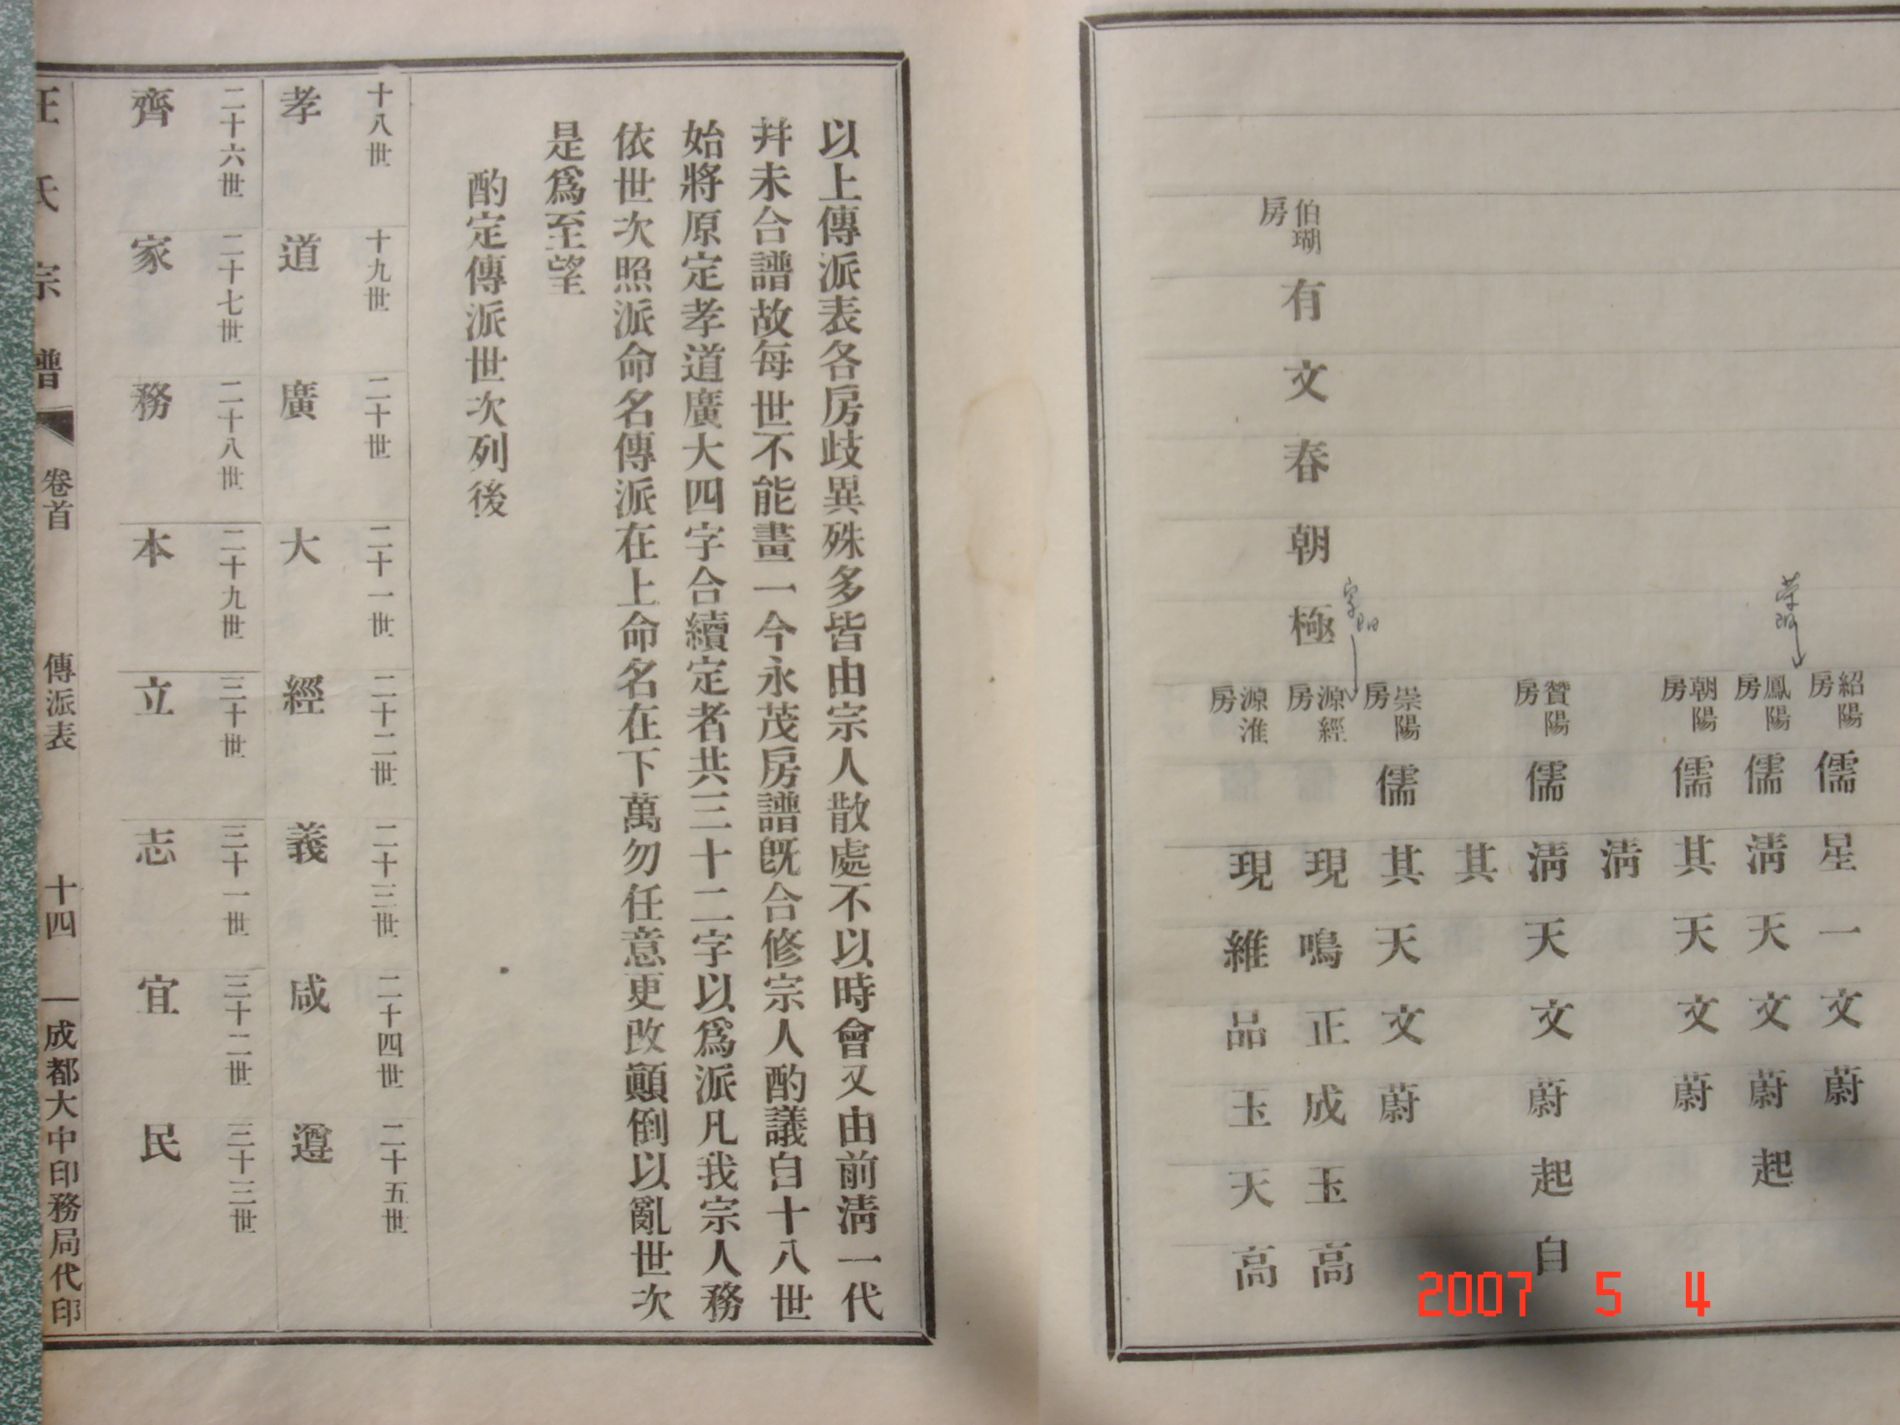 伯瑚房
有文春朝極
紹陽房
儒星一文蔚
鳳陽房
儒淸天文蔚起
朝陽房
儒其天文蔚
淸
贊陽房
儒淸天文蔚起自
其
崇陽房
儒其天文蔚
源經房
現鳴正成玉高
源淮房
現維品玉天高
以上傳派表各房歧異殊多皆由宗人散處不以時會又由前淸一代
幷未合譜故每世不能畫一今永茂房譜旣合修宗人酌議自十八世
始將原定孝道廣大四字合續定者共三十二字以爲派凡我宗人務
依世次照派命名傳派在上命名在下萬勿任意更改顚倒以亂世次
是爲至望
酌定傳派世次列後
十八世 十九世 二十世 二十一世 二十二世 二十三世 二十四世 二十五世
孝 道 廣 大 經 義 咸 遵
二十六世 二十七世 二十八世 二十九世 三十世 三十一世 三十二世 三十三世
齊 家 務 本 立 志 宜 民
汪氏宗譜 卷首 傳派表 十四 成都大中印務局代印
2007 5 4